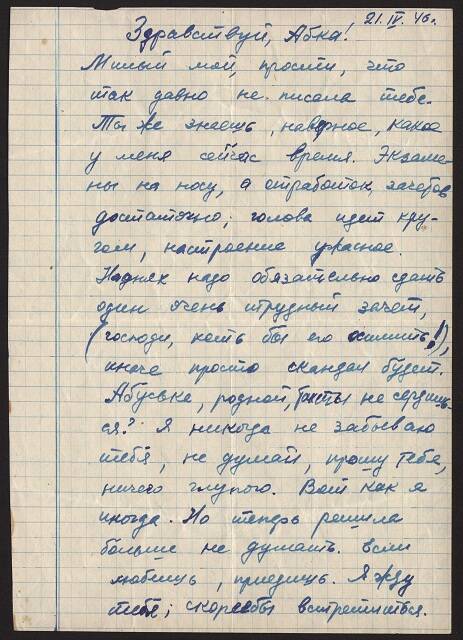 21.IV.46г.
Здравствуй, Абка!
Милый мой, прости, что
так давно не писала тебе.
Ты же знаешь, наверное, какое
у меня сейчас время. Экзаме-
ны на носу, а отработок, зачетов
достаточно; голова идет кру-
гом, настроение ужасное.
Наднях надо обязательно сдать
один очень трудный зачет,
(господи, хоть бы его осилить!),
иначе просто скандал будет.
Абуська, родной, ты не сердишь-
ся? Я никогда не забываю
тебя, не думай, прошу тебя,
ничего глупого. Вот как я
иногда. Но теперь решила
больше не думать. Если
любишь, приедешь. Я жду
тебя; скорее бы встретиться.